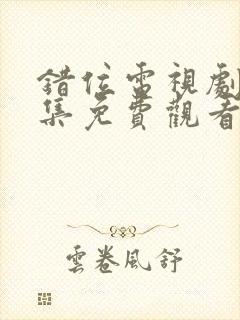 錯位電視劇
集免費觀看
雲卷風舒